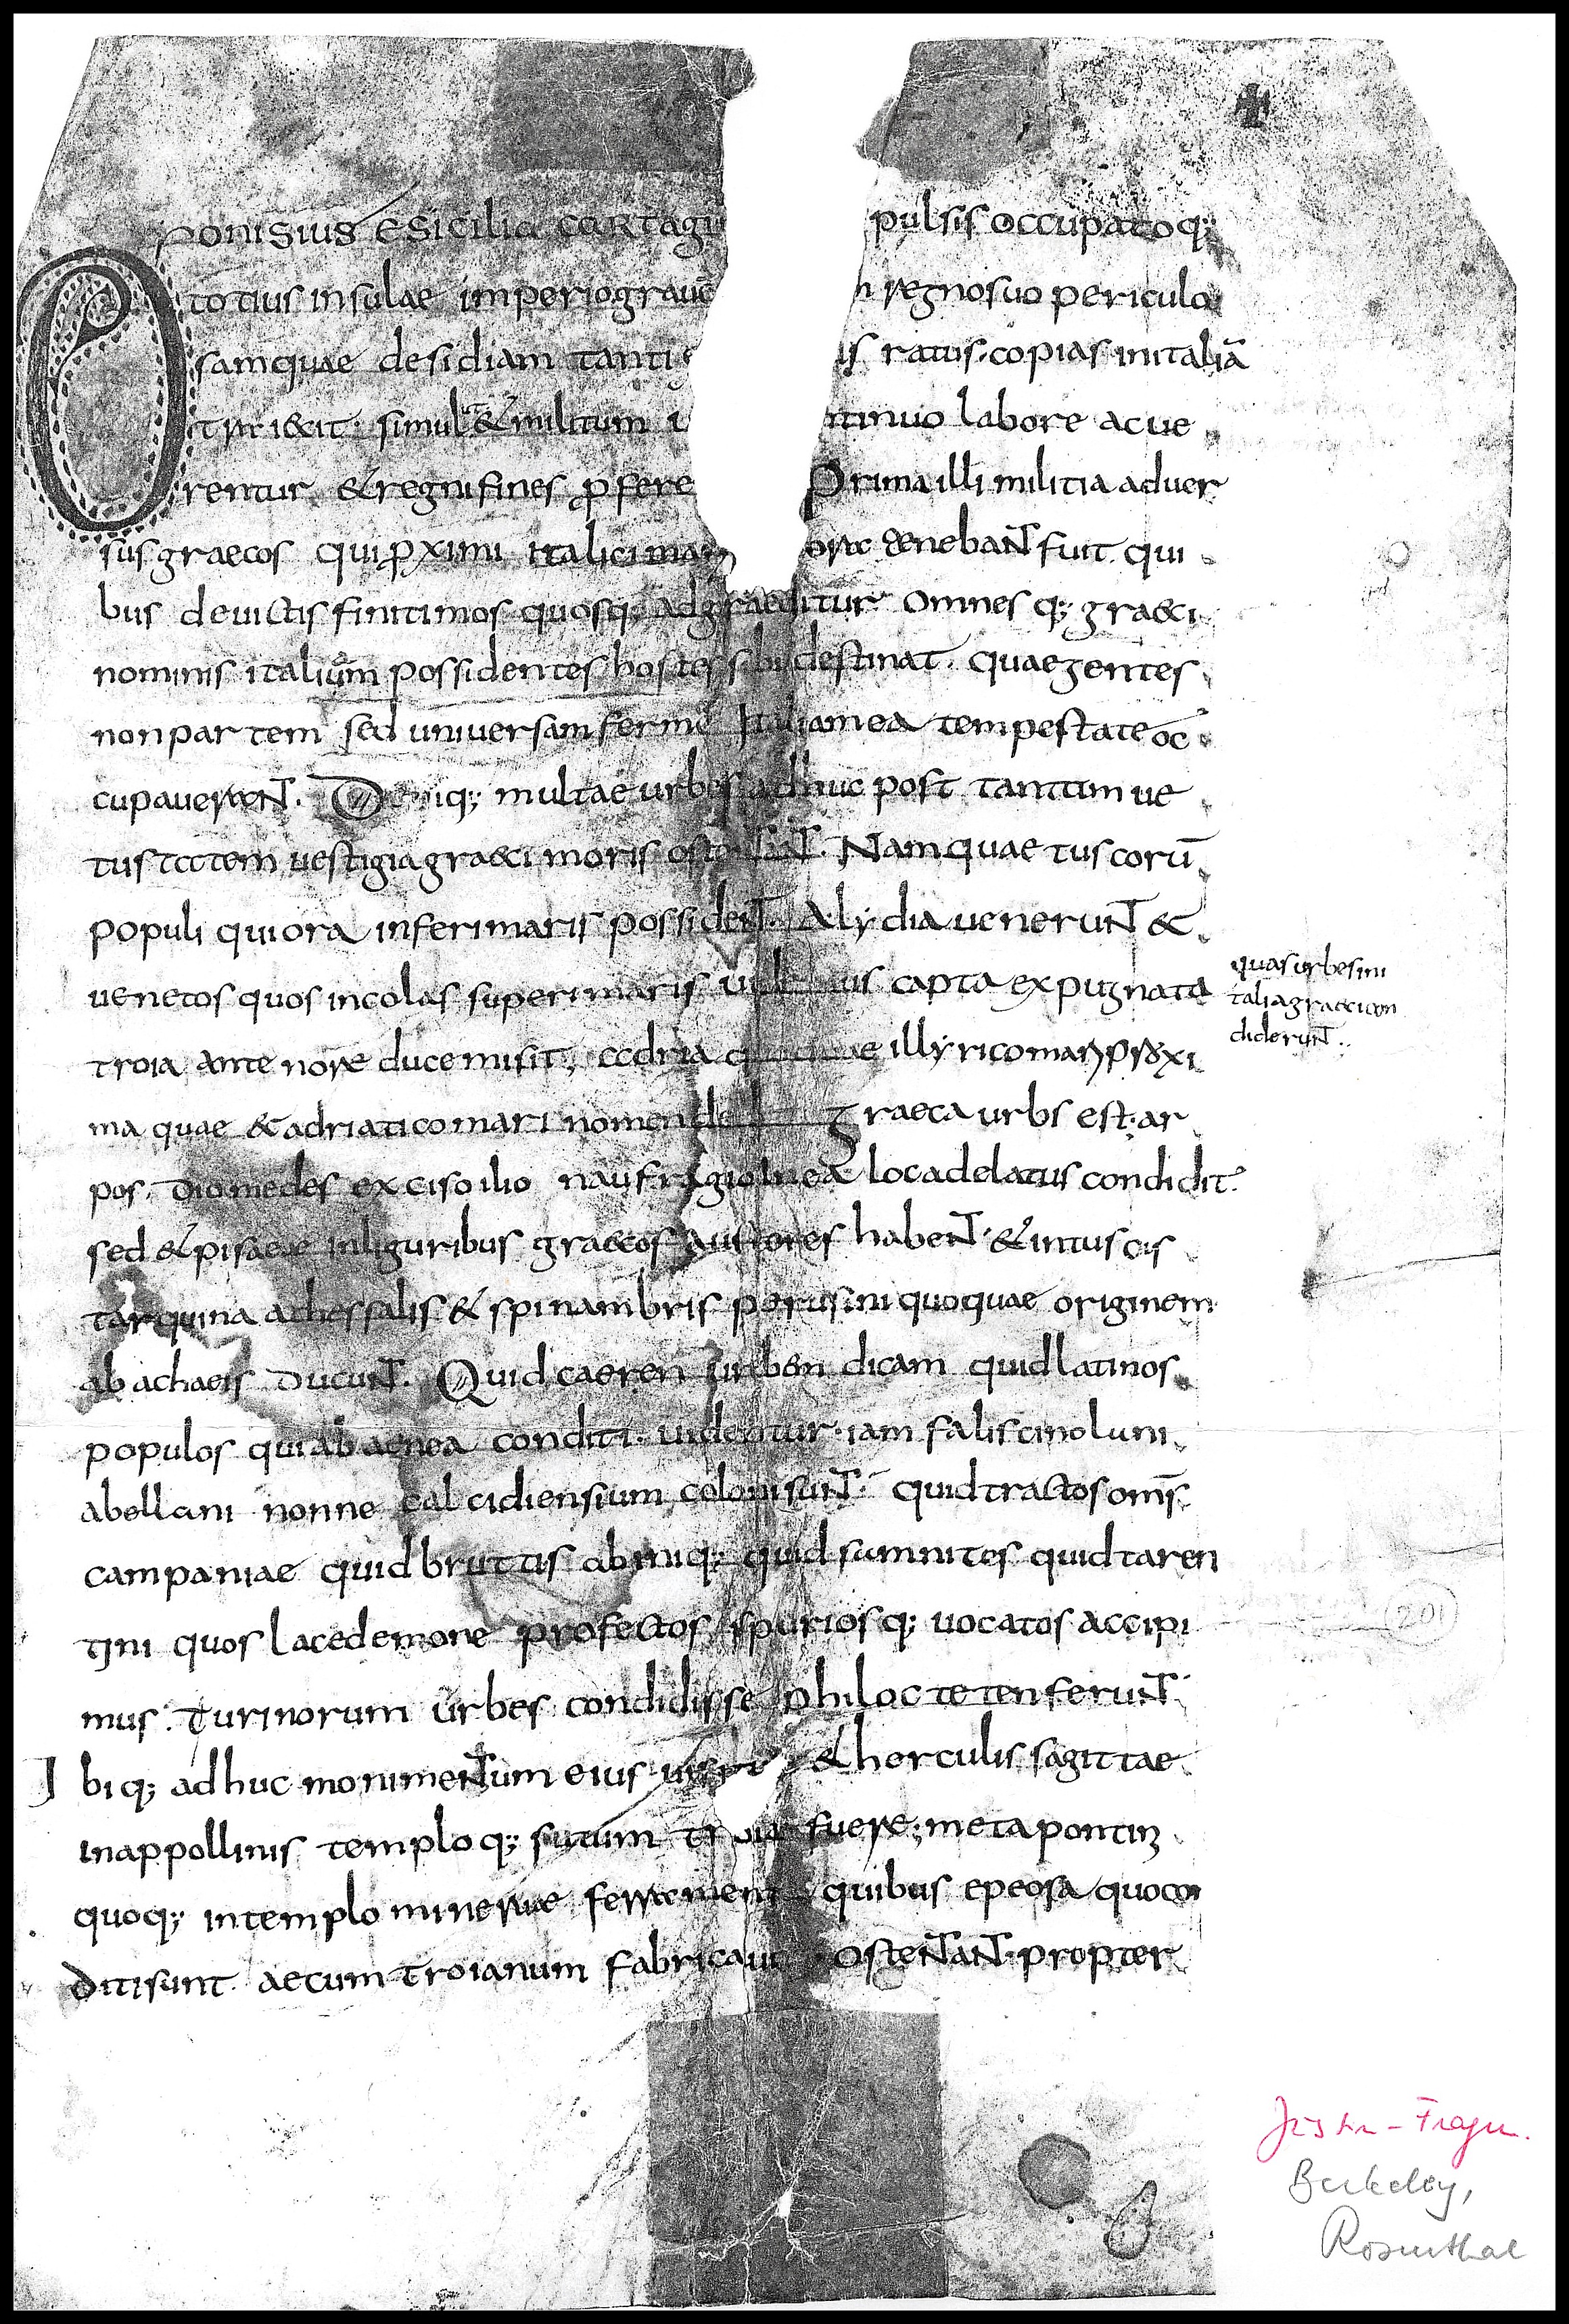 DIONISIUS E SICILIA CARTAGI pulsis occupatoq;
totius insulae imperio grauē regno suo periculo
samquae desidiam tanti is ratus. copias in italiā
traiecit. simul ut & militum ntinuo labore acue
rentur & regni fines pferre Prima illi militia aduer
sus graecos qui pximi italici mar tenebant fuit. qui
bus deuictis finitimos quosq; adgraeditur. Omnesq; graeci
nominis italium possidentes hostes sibi destinat. quae gentes
non partem sed uniuersam ferme italiam ea tempestate oc
cupauerant. Deniq; multae urbes adhuc post tantum ue
tustatem uestigia graeci moris ostentant. Namquae tuscorū
populi qui ora inferi maris possident. A lydia uenerunt &
uenetos quos incolas superi maris uidemus capta expugnata
troia antenore duce misit; adria quoquae illyrico mari proxi
ma quae & adriatico mari nomen dedit graeca urbs est. ar
pos. diomedes exciso ilio naufragio in ea loca delatus condidit.
sed & pisae in liguribus graecos auctores habent. & in tuscis
tarquina a thessalis & spinambris perusini quoquae originem
ab achaeis ducunt. Quid caeren urben dicam quid latinos
populos qui ab aenea conditi. uidentur. iam falisci noluni
abellani nonne calcidiensium coloni sunt. quid tractos omīs
campaniae quid bruttis abiniq; quid samnites quid taren
tini quos lacedemone profectos spuriosq; uocatos accipi
mus. Turinorum urbes condidisse philocteten ferunt.
Ibiq; adhuc monimentum eius & herculis sagittae
in appollinis temploq; fatum troiae fuere; metapontini
quoq; in templo minerue ferramenta quibus epeos a quo con
diti sunt aecum troianum fabricauit ostentant. propter
quas urbes in
talia graeci con
diderunt..
201
Justin-Fragm.
Berkeley,
Rosenthal